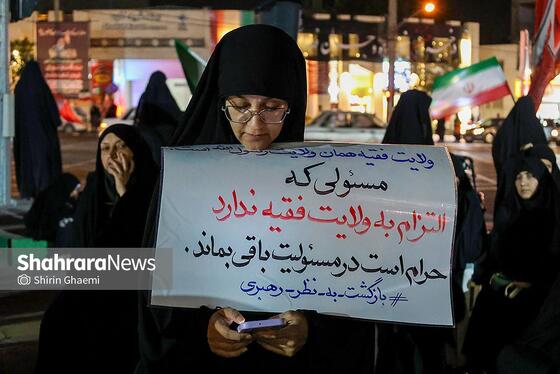 ولایت فقیه همان ولایت رسول الله است
مسئولی که
التزام به ولایت فقیه ندارد
حرام است در مسئولیت باقی بماند.
#بازگشت_به_نظر_رهبری
ShahraraNews
© Shirin Ghaemi